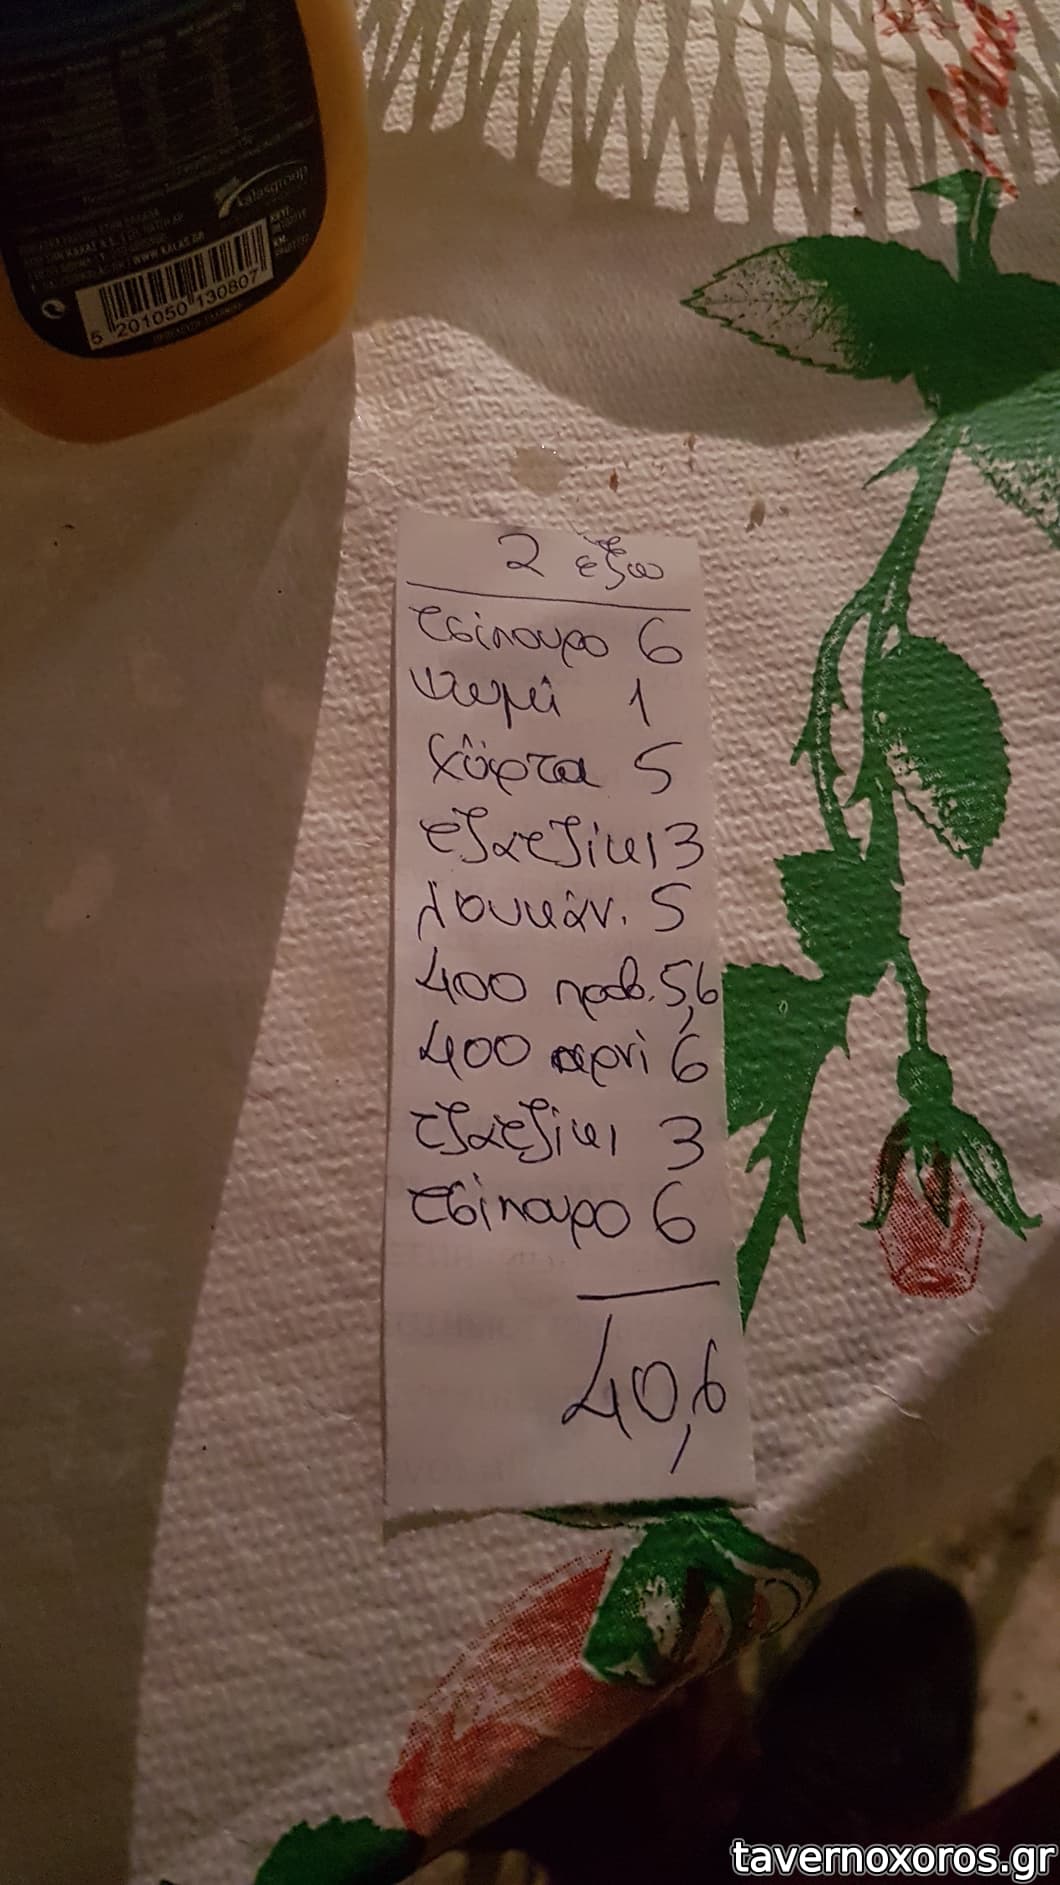 kalasgroup
WWW.KALAS.GR
5 201050 130807
2 έξω
τσίπουρο 6
ψωμί 1
χόρτα 5
τζατζίκι 3
λουκάν. 5
400 προβ. 5,6
400 αρνί 6
τζατζίκι 3
τσίπουρο 6
40,6
tavernoxoros.gr